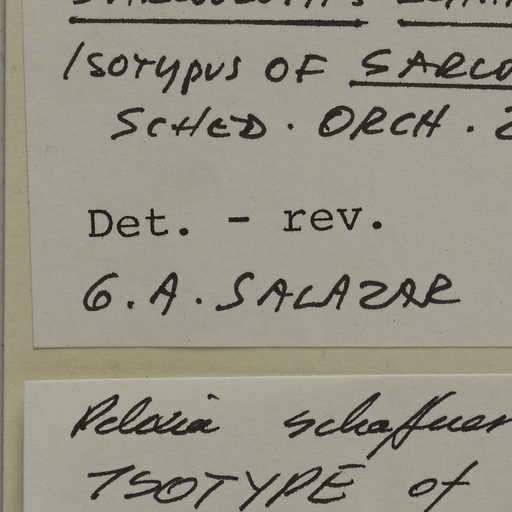 Isotypus OF SARCO
SCHED. ORCH. 2
Det. - rev.
G.A. SALAZAR
Pelexia schaffner
ISOTYPE of